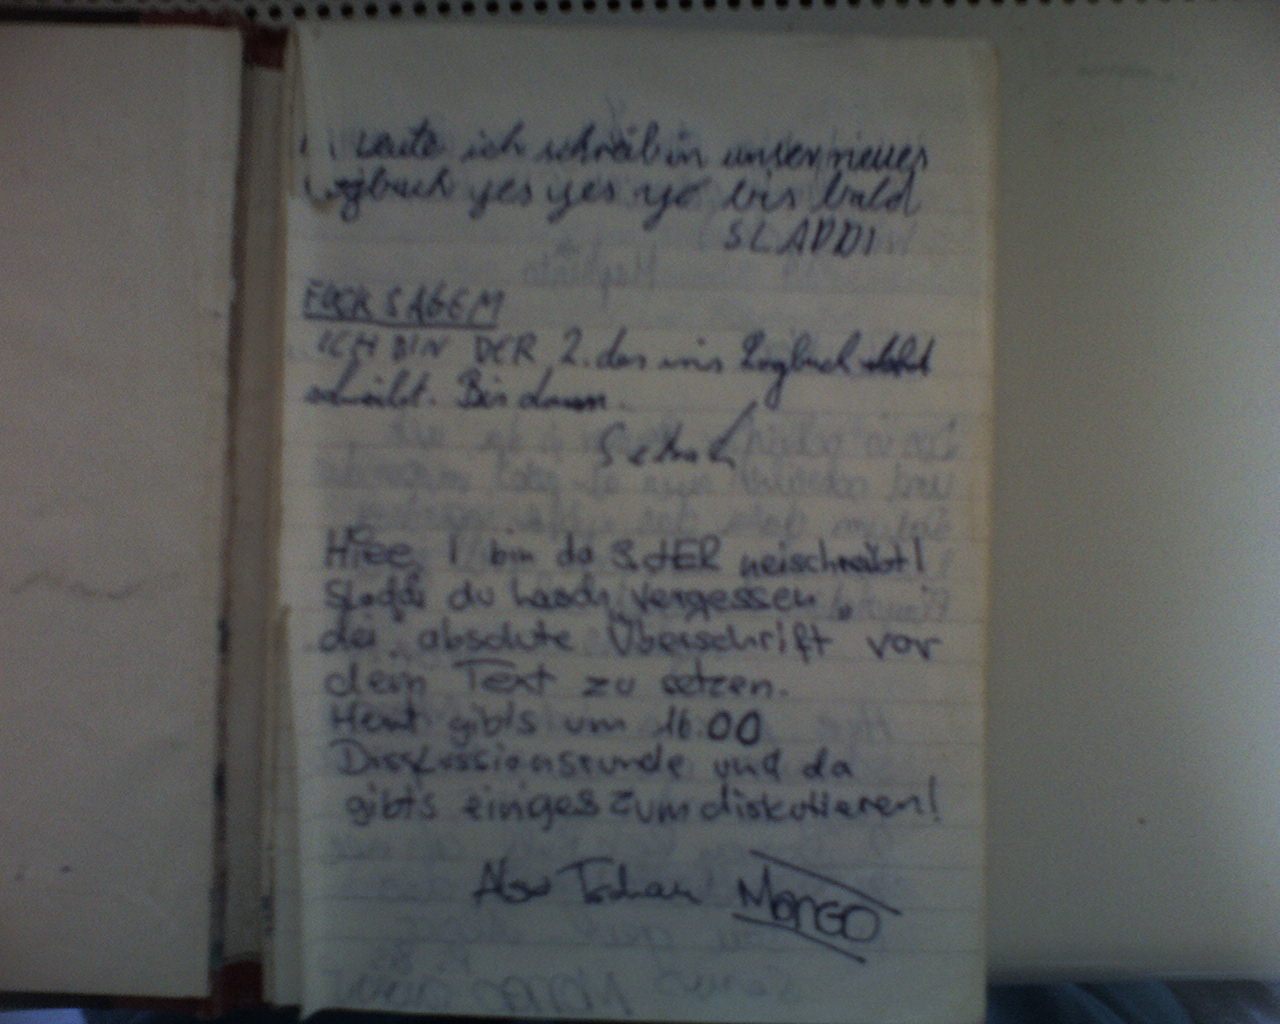 Leute ich schreib in unser neues
Logbuch yes yes yo bis bald
SLADDI
FUCK SAGEM
ICH BIN DER 2. der ins Logbuch
schreibt. Bis dann.
Hiee, I bin da 3. dER neischreibt!
Sladdi du hasch vergessen,
die absolute Überschrift vor
dein Text zu setzen.
Heut gibts um 16.00
Disskussionsrunde und da
gibts einiges zum diskutieren!
Also Tschau MONGO